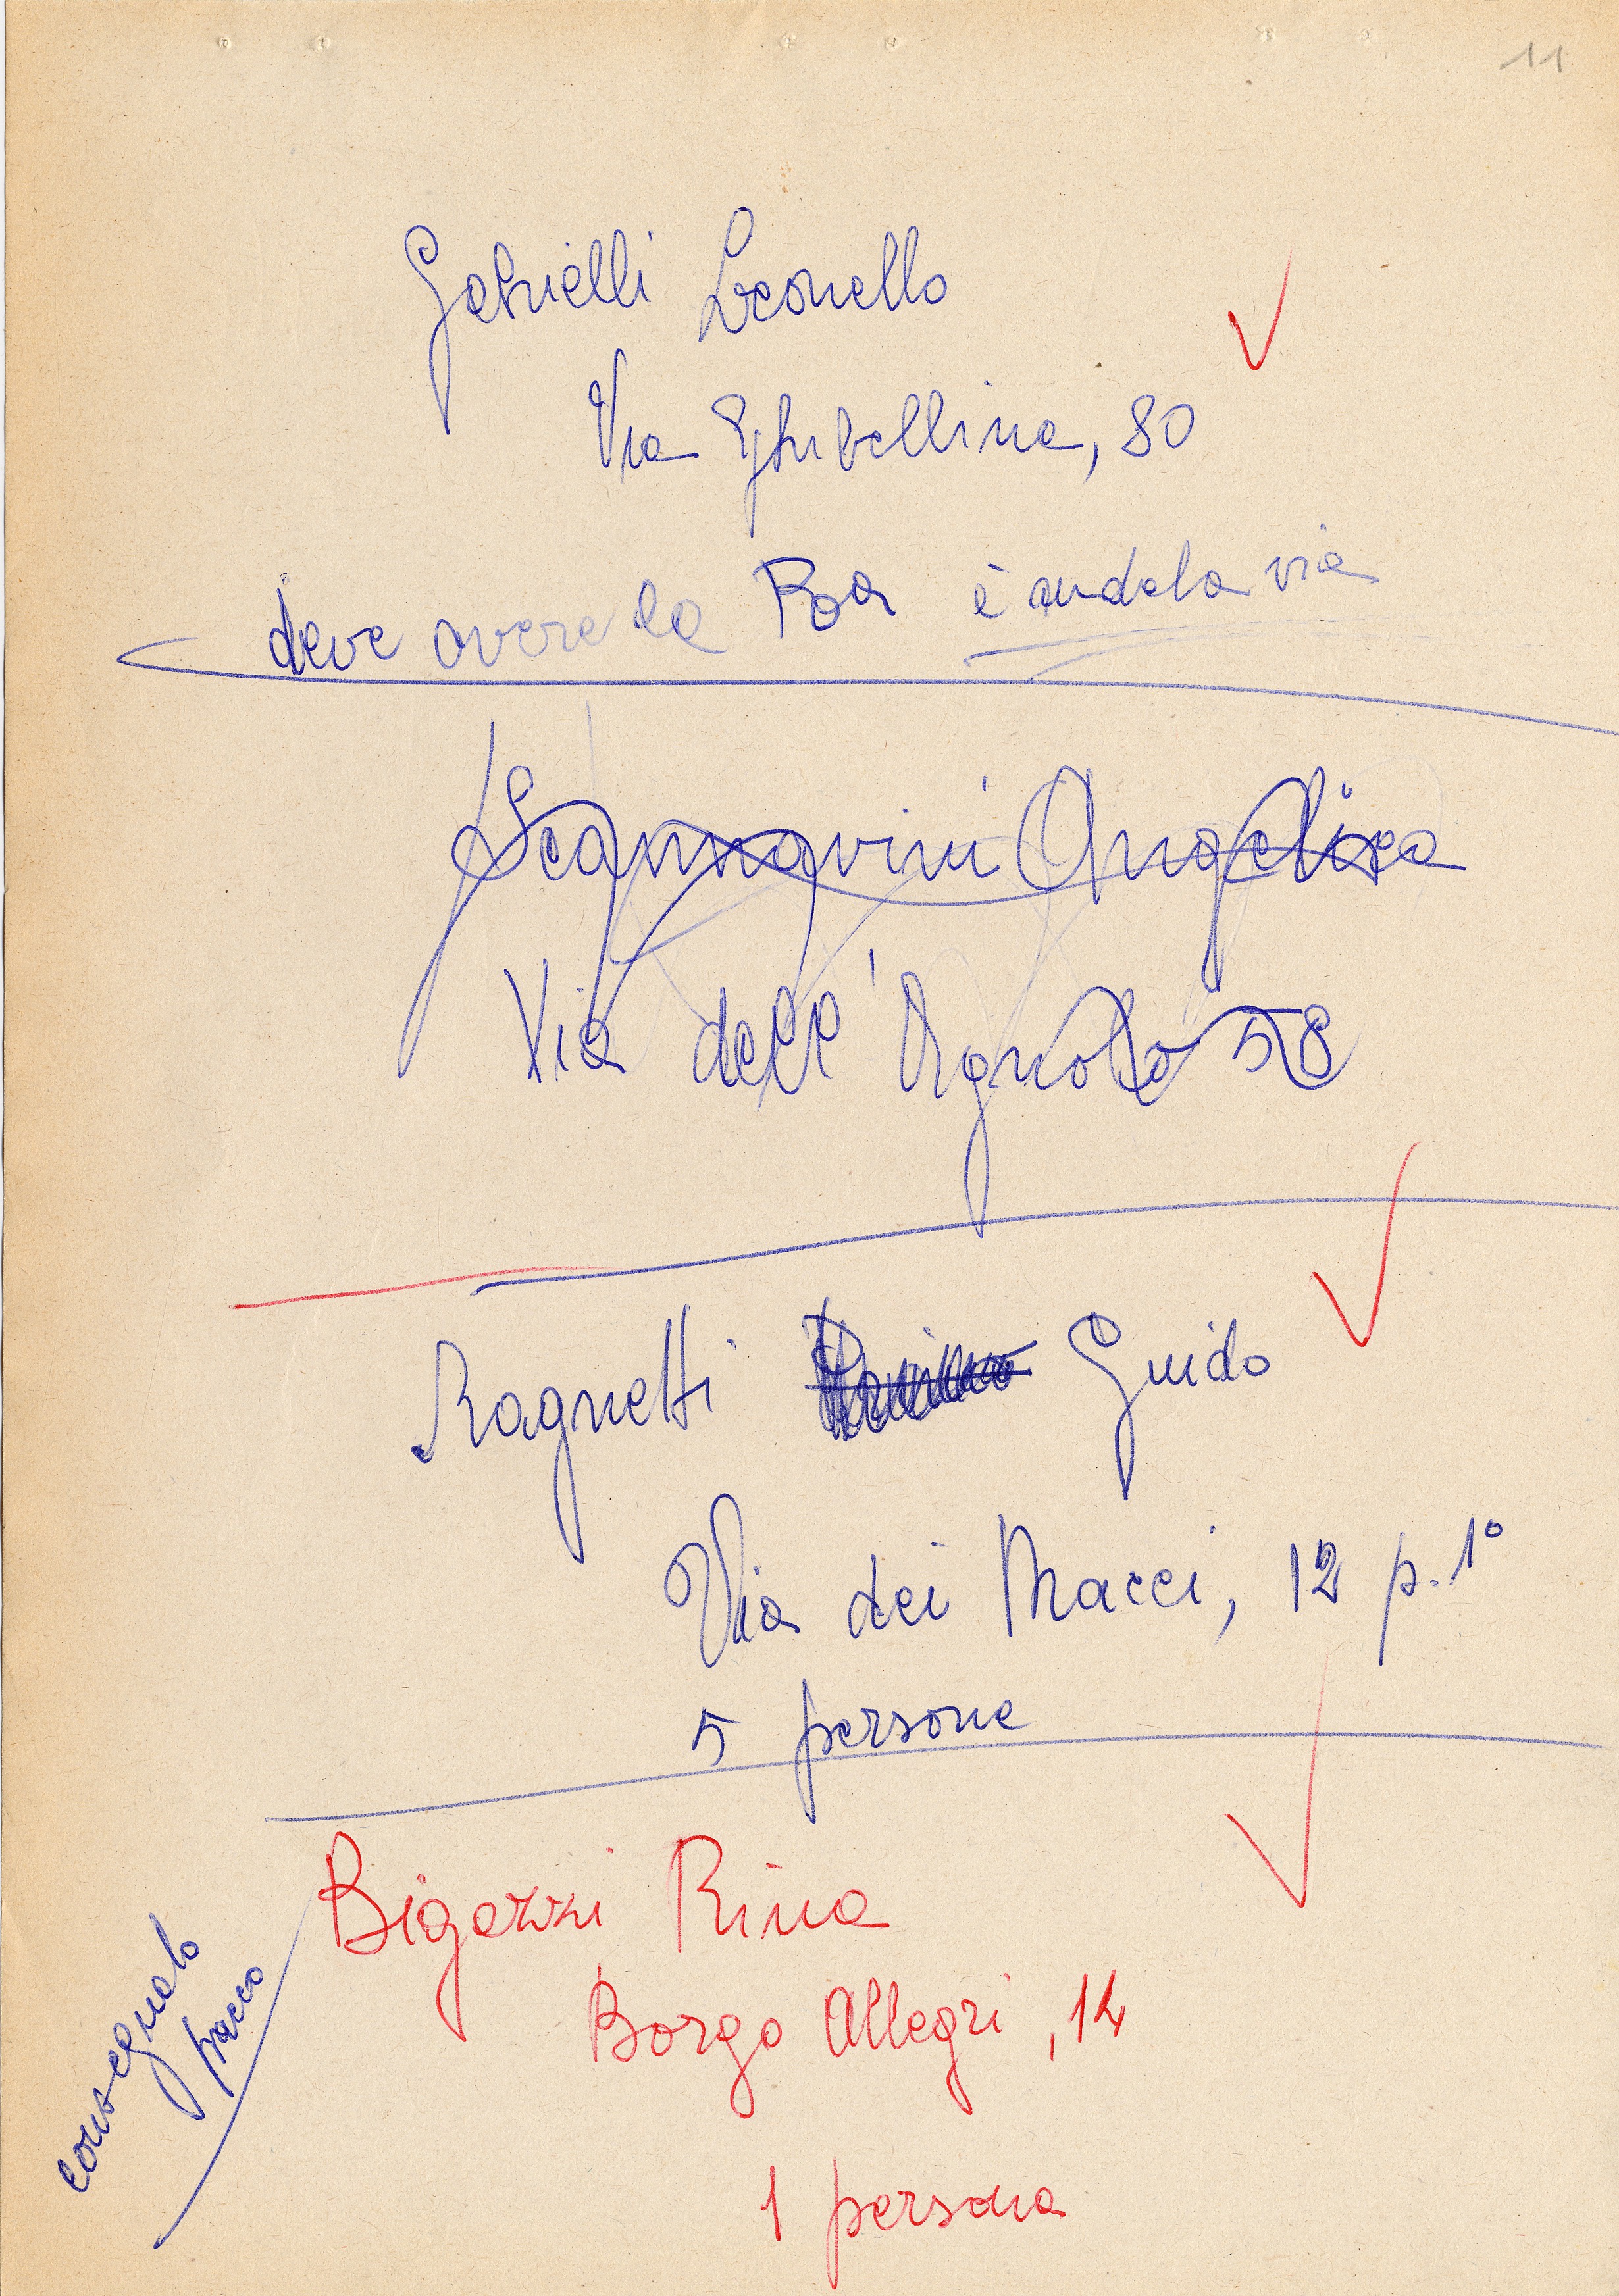 11
Gabrielli Leonello
Via Ghibellina, 80
deve avere la Roa è andata via
Scannavini Angelica
Via dell'Agnolo 58
Ragnetti Guido
Via dei Macci, 12 p. 1°
5 persone
Bigazzi Rina
Borgo Allegri, 14
1 persona
consegnato
pacco